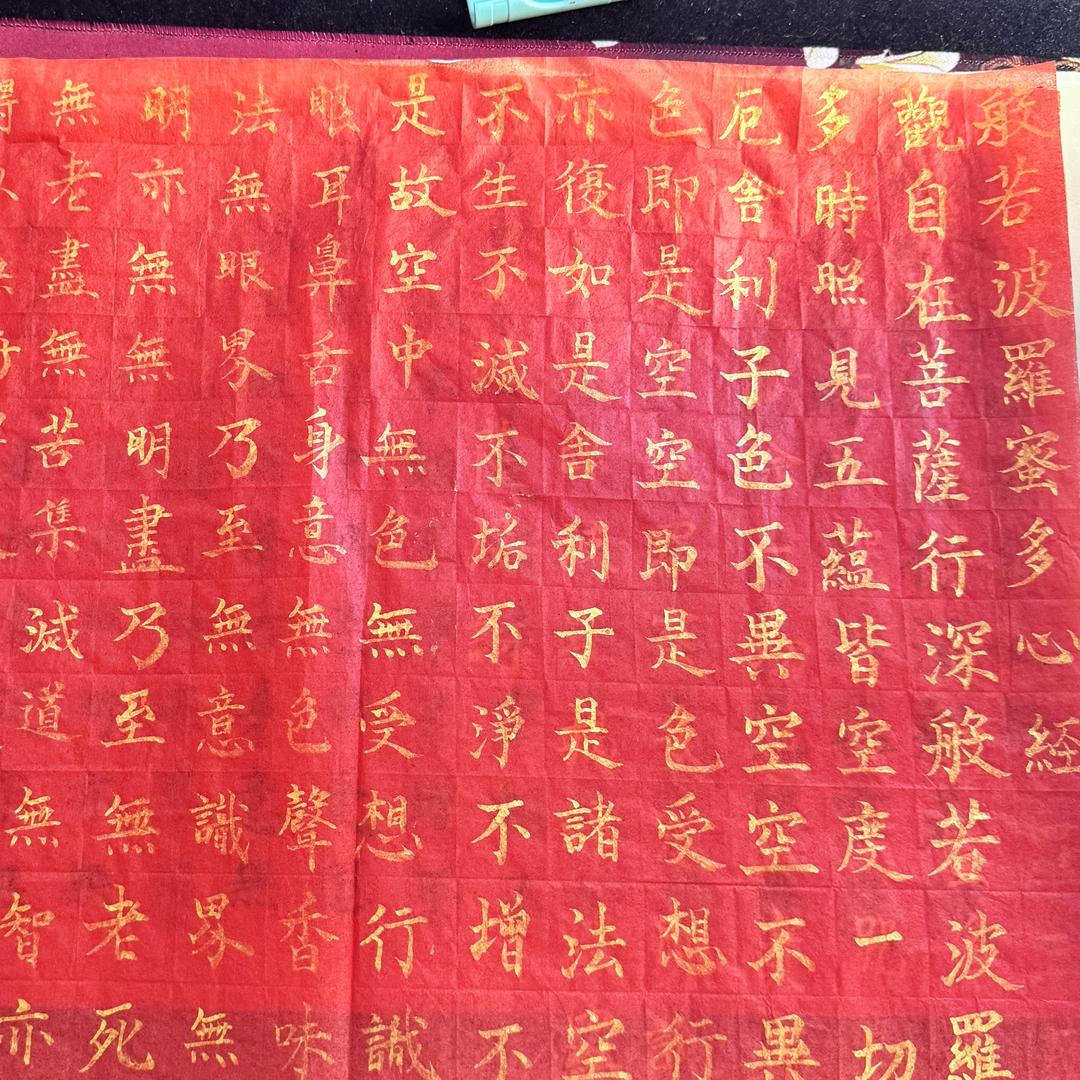 般若波羅蜜多心経
觀自在菩薩行深般若波羅
多時照見五蘊皆空度一切
厄舍利子色不異空空不異
色即是空空即是色受想行
亦復如是舍利子是諸法空
不生不滅不垢不淨不增不
是故空中無色無受想行識
眼耳鼻舌身意無色聲香味
法無眼界乃至無意識界無
明亦無無明盡乃至無老死
無老盡無苦集滅道無智亦